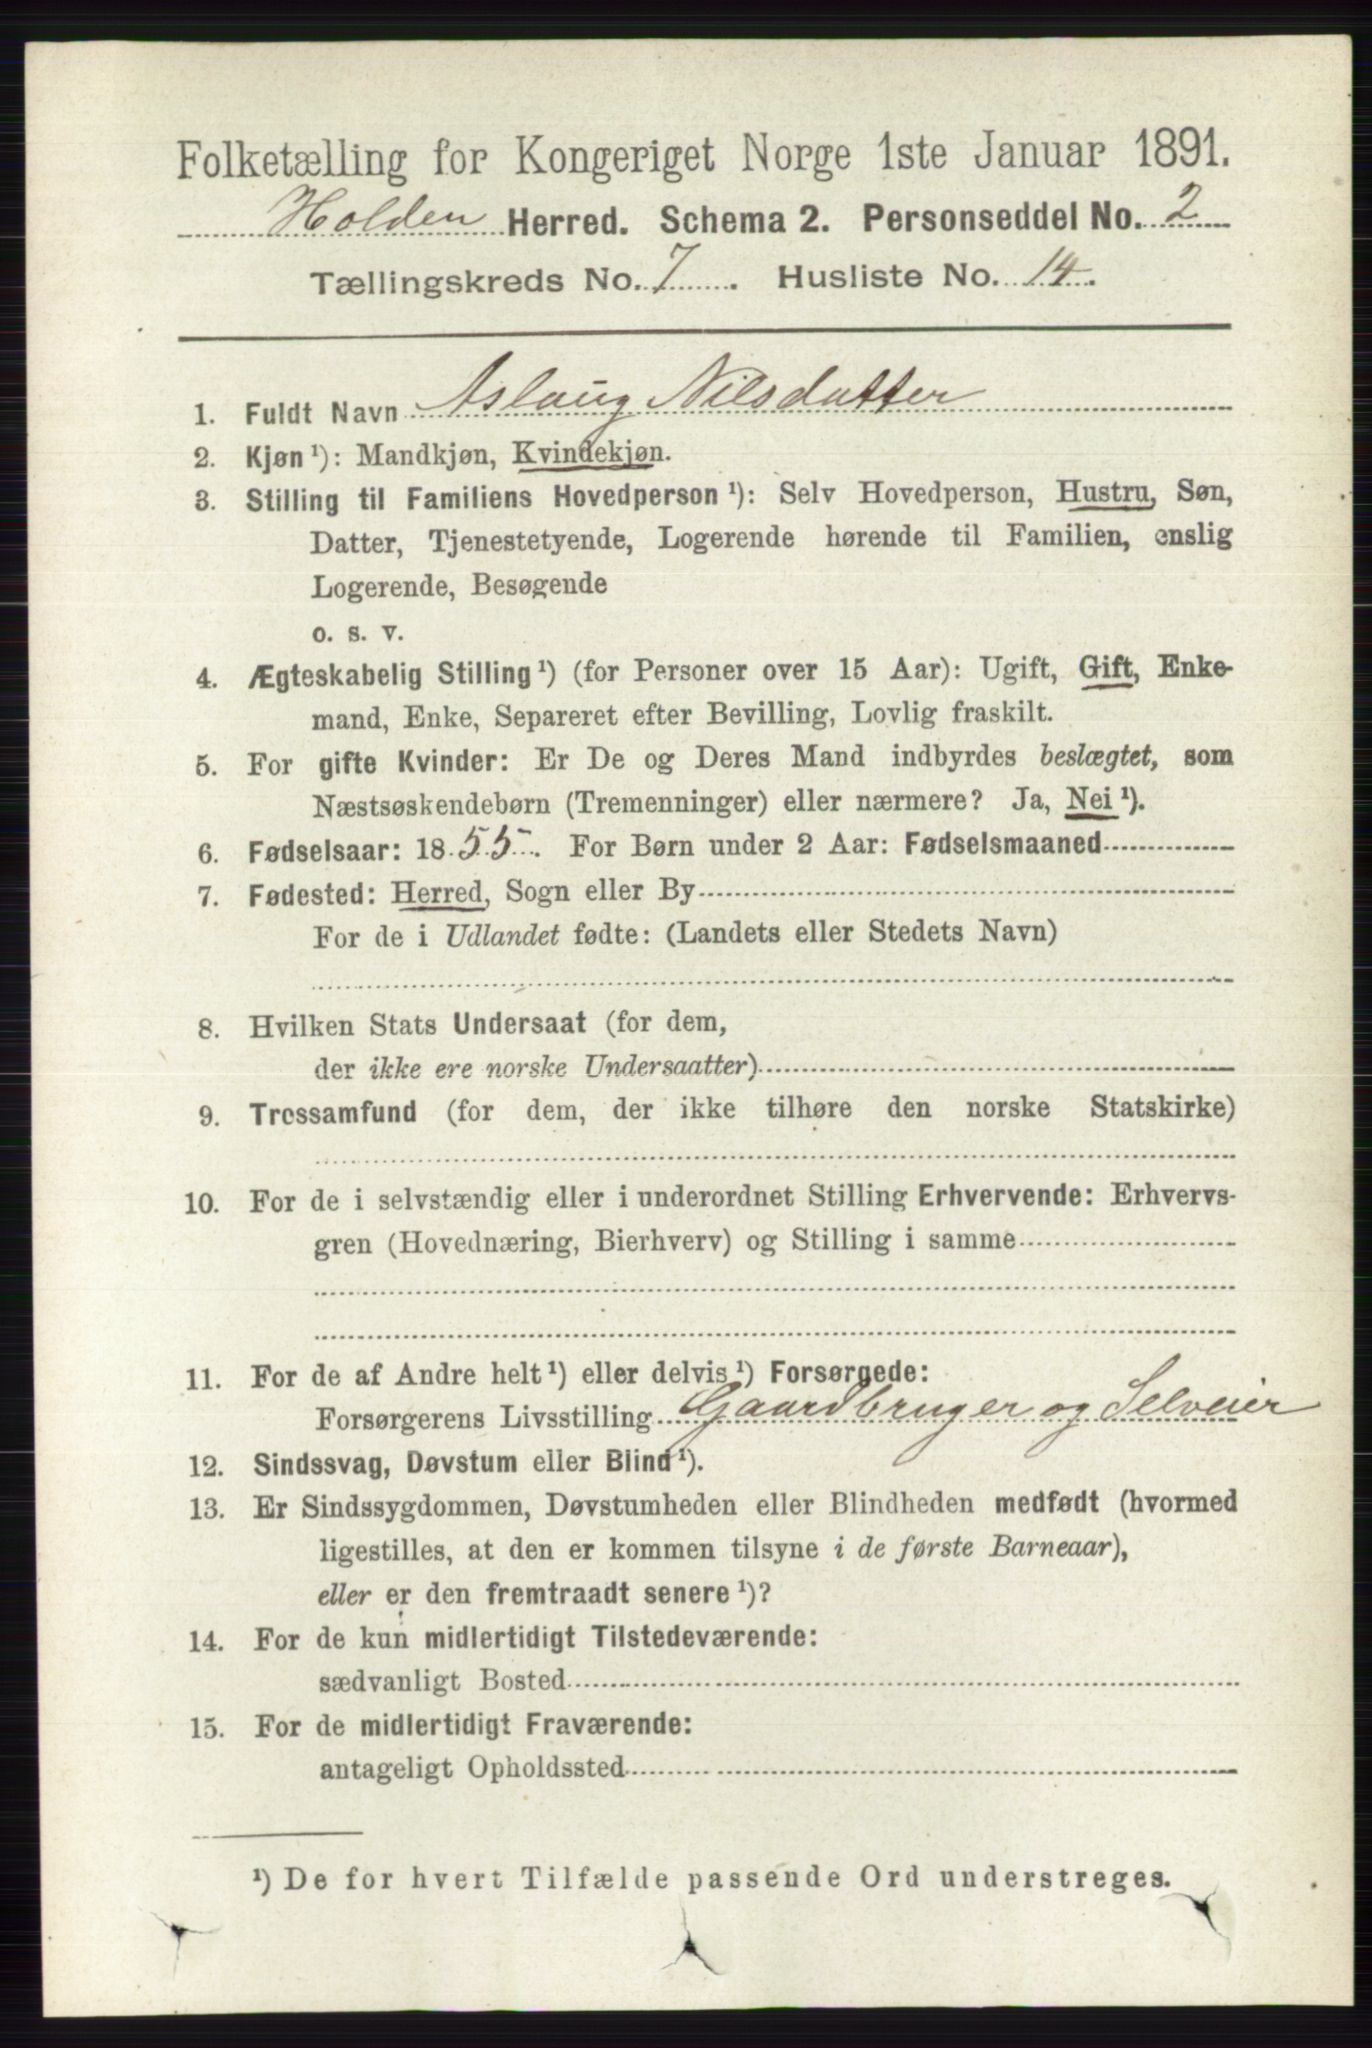 Folketælling for Kongeriget Norge 1ste Januar 1891.
Holden Herred. Schema 2. Personseddel No. 2
Tællingskreds No. 7. Husliste No. 14.
1. Fuldt Navn Aslaug Nilsdatter
2. Kjøn¹): Mandkjøn, Kvindekjøn.
3. Stilling til Familiens Hovedperson¹): Selv Hovedperson, Hustru, Søn,
Datter, Tjenestetyende, Logerende hørende til Familien, enslig
Logerende, Besøgende
o. s. v.
4. Ægteskabelig Stilling¹) (for Personer over 15 Aar): Ugift, Gift, Enke-
mand, Enke, Separeret efter Bevilling, Lovlig fraskilt.
5. For gifte Kvinder: Er De og Deres Mand indbyrdes beslægtet, som
Næstsøskendebørn (Tremenninger) eller nærmere? Ja, Nei¹).
6. Fødselsaar: 1855. For Børn under 2 Aar: Fødselsmaaned
7. Fødested: Herred, Sogn eller By
For de i Udlandet fødte: (Landets eller Stedets Navn)
8. Hvilken Stats Undersaat (for dem,
der ikke ere norske Undersaatter)
9. Trossamfund (for dem, der ikke tilhøre den norske Statskirke)
10. For de i selvstændig eller i underordnet Stilling Erhvervende: Erhvervs-
gren (Hovednæring, Bierhverv) og Stilling i samme
11. For de af Andre helt¹) eller delvis¹) Forsørgede:
Forsørgerens Livsstilling Gaardbruger og Selveier
12. Sindssvag, Døvstum eller Blind¹).
13. Er Sindssygdommen, Døvstumheden eller Blindheden medfødt (hvormed
ligestilles, at den er kommen tilsyne i de første Barneaar),
eller er den fremtraadt senere¹)?
14. For de kun midlertidigt Tilstedeværende:
sædvanligt Bosted
15. For de midlertidigt Fraværende:
antageligt Opholdssted
¹) De for hvert Tilfælde passende Ord understreges.